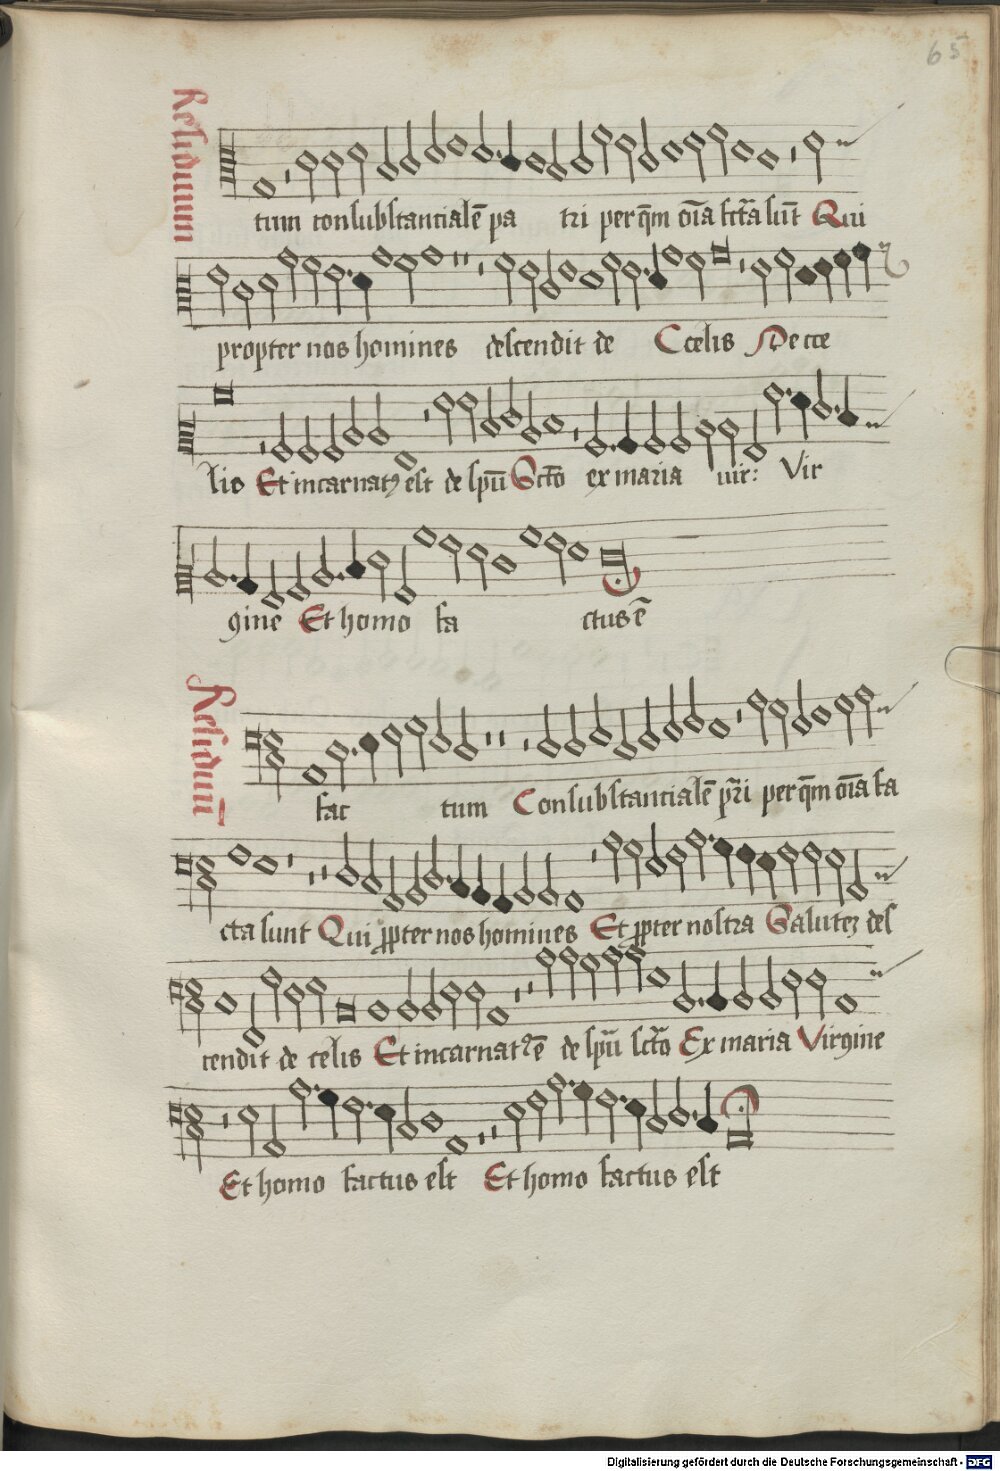 65
Residuum
tum consubstantialē pa tri per qm̄ oīa fctā sūt Qui
propter nos homines descendit de Ccelis De cce
lis Et incarnatꝰ est de spū Scto ex maria uir: Vir
gine Et homo fa ctus ē
Residuū
fac tum Consubstancialē pr̄i per qm̄ oīa fa
cta sunt Qui ꝓpter nos homines Et ꝓpter nostra Salutez des
cendit de celis Et incarnatꝰ ē de spū scto Ex maria Virgine
Et homo factus est Et homo factus est
Digitalisierung gefördert durch die Deutsche Forschungsgemeinschaft - DFG